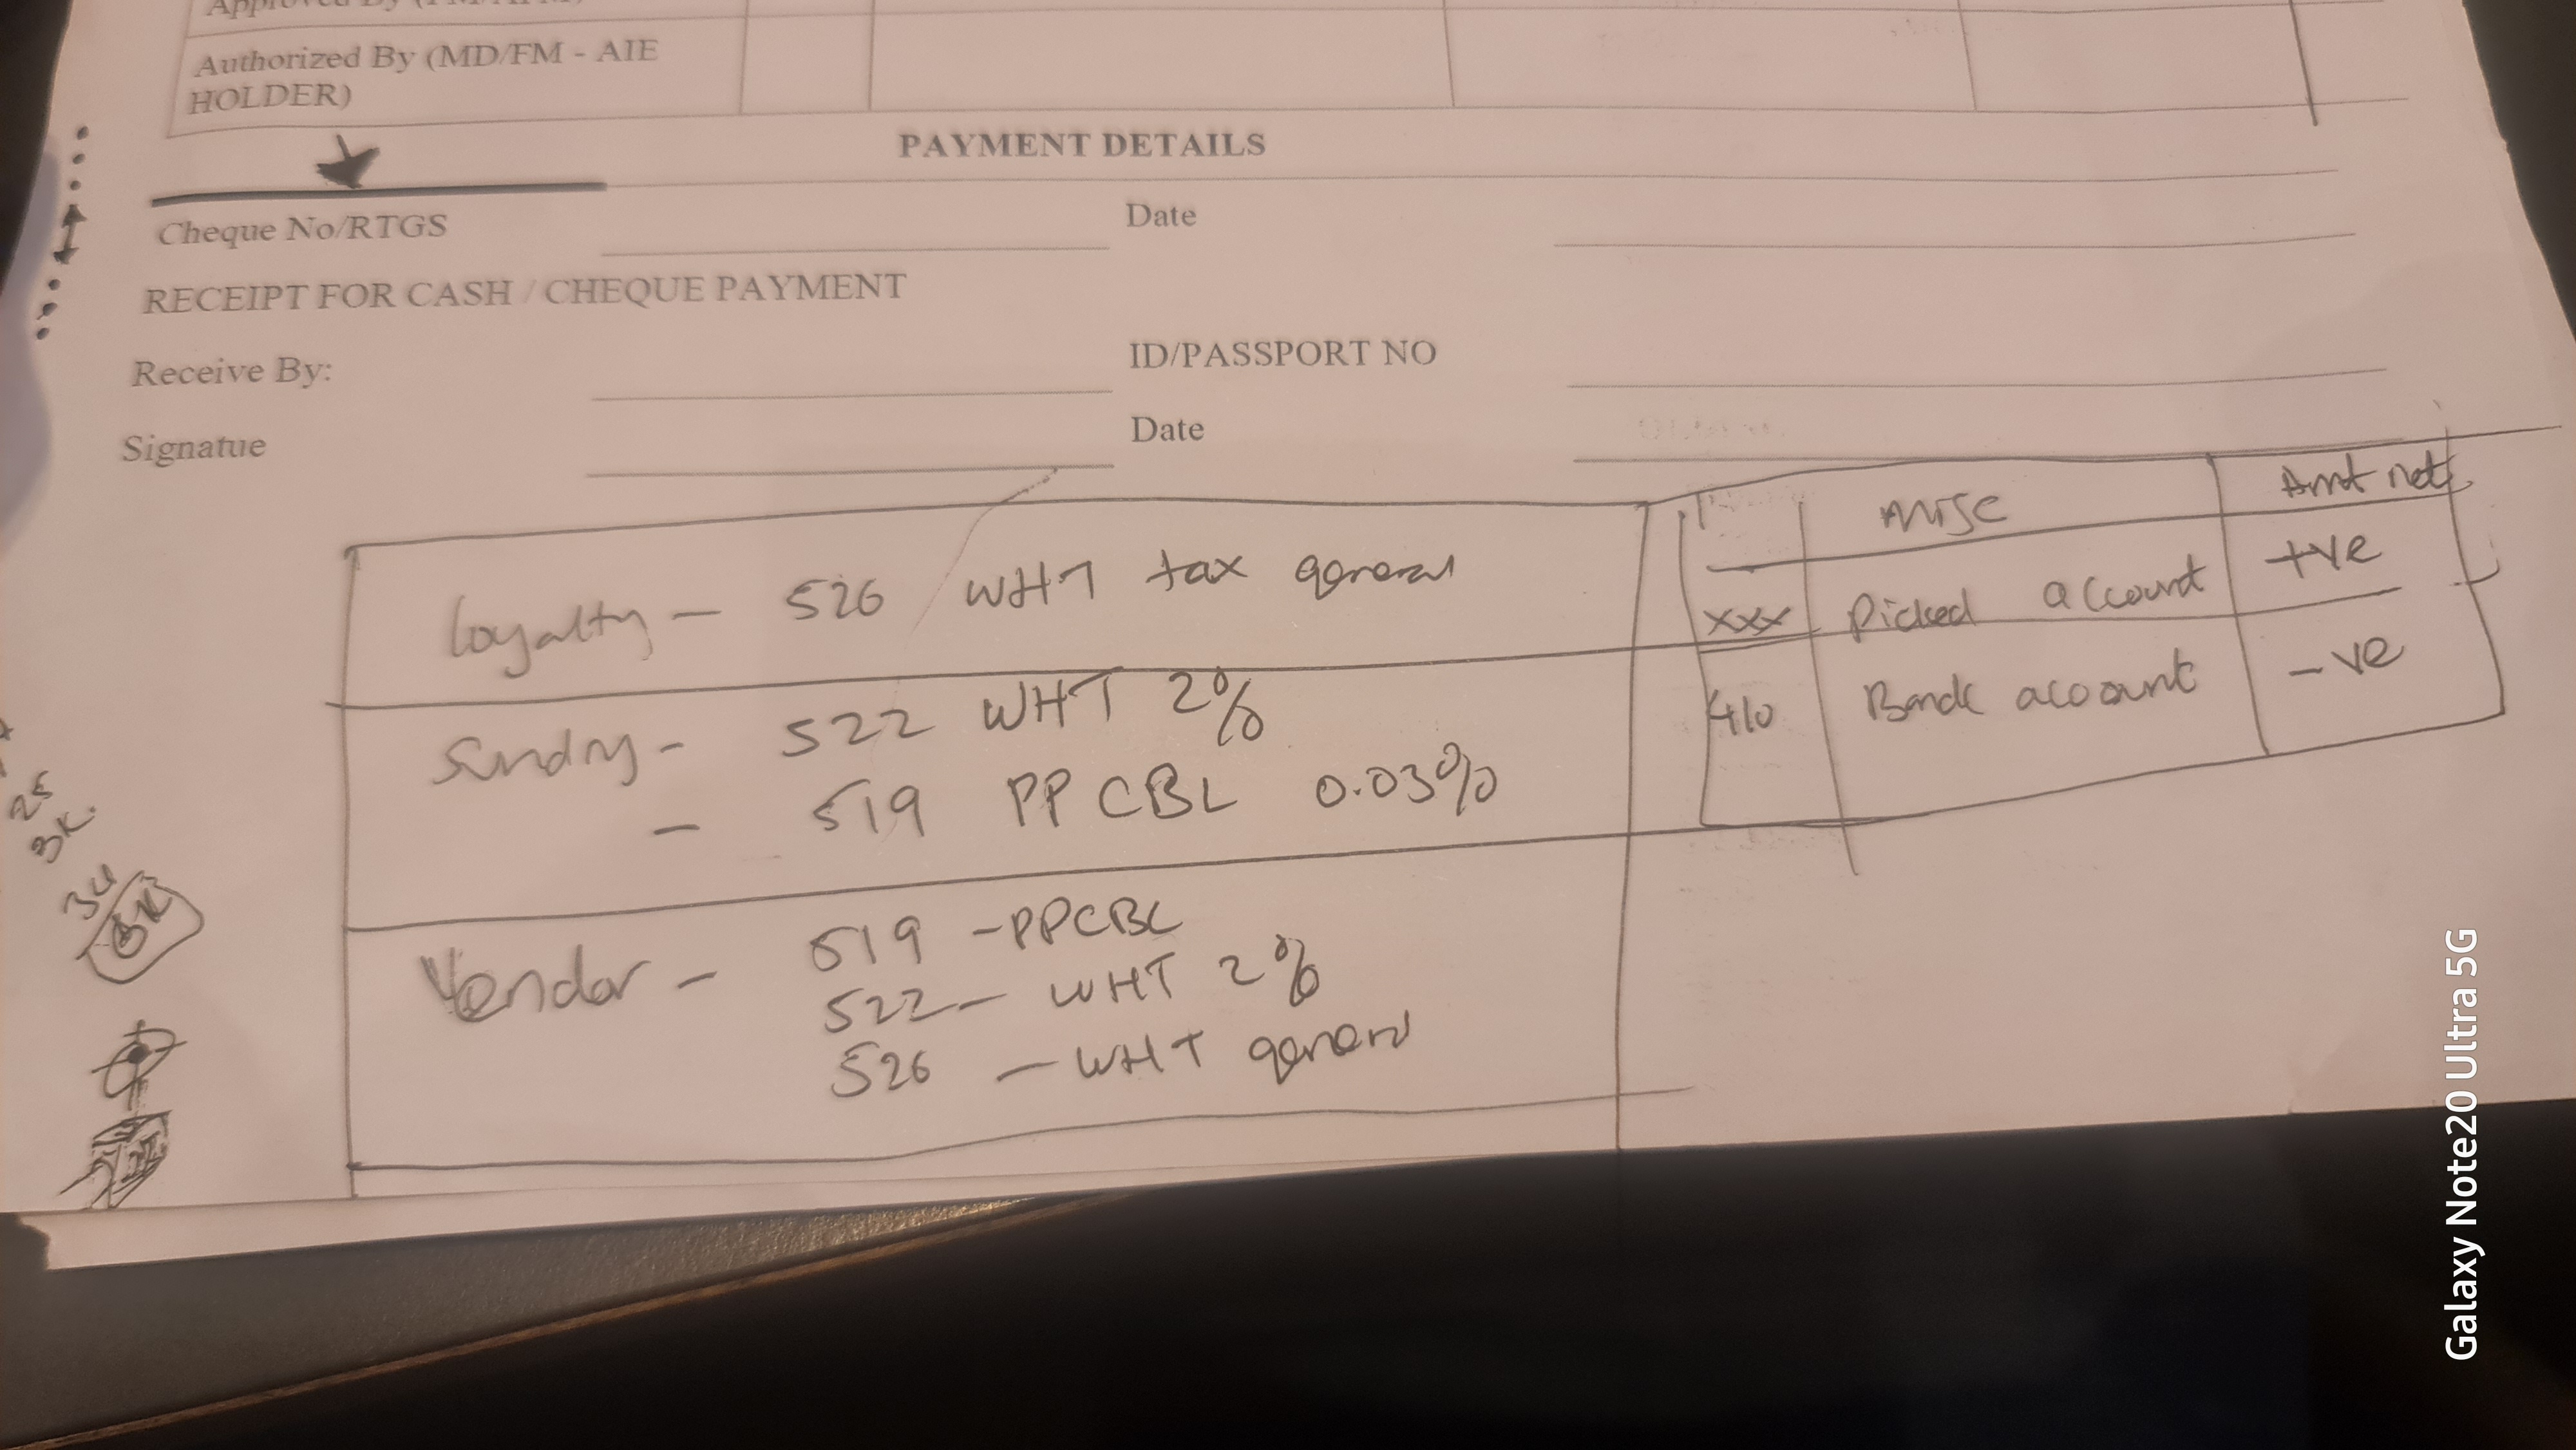 Authorized By (MD/FM - AIE
HOLDER)
PAYMENT DETAILS
Cheque No/RTGS
Date
RECEIPT FOR CASH / CHEQUE PAYMENT
Receive By:
ID/PASSPORT NO
Signatue
Date
Loyalty - 526 WHT tax general
Sundry - 522 WHT 2%
- 519 PPCBL 0.03%
Vendor - 519 - PPCBL
522 - WHT 2%
526 - WHT general
misc Amt net
xxx Picked account +ve
410 Bank acoount -ve
25
3K.
34
Galaxy Note20 Ultra 5G